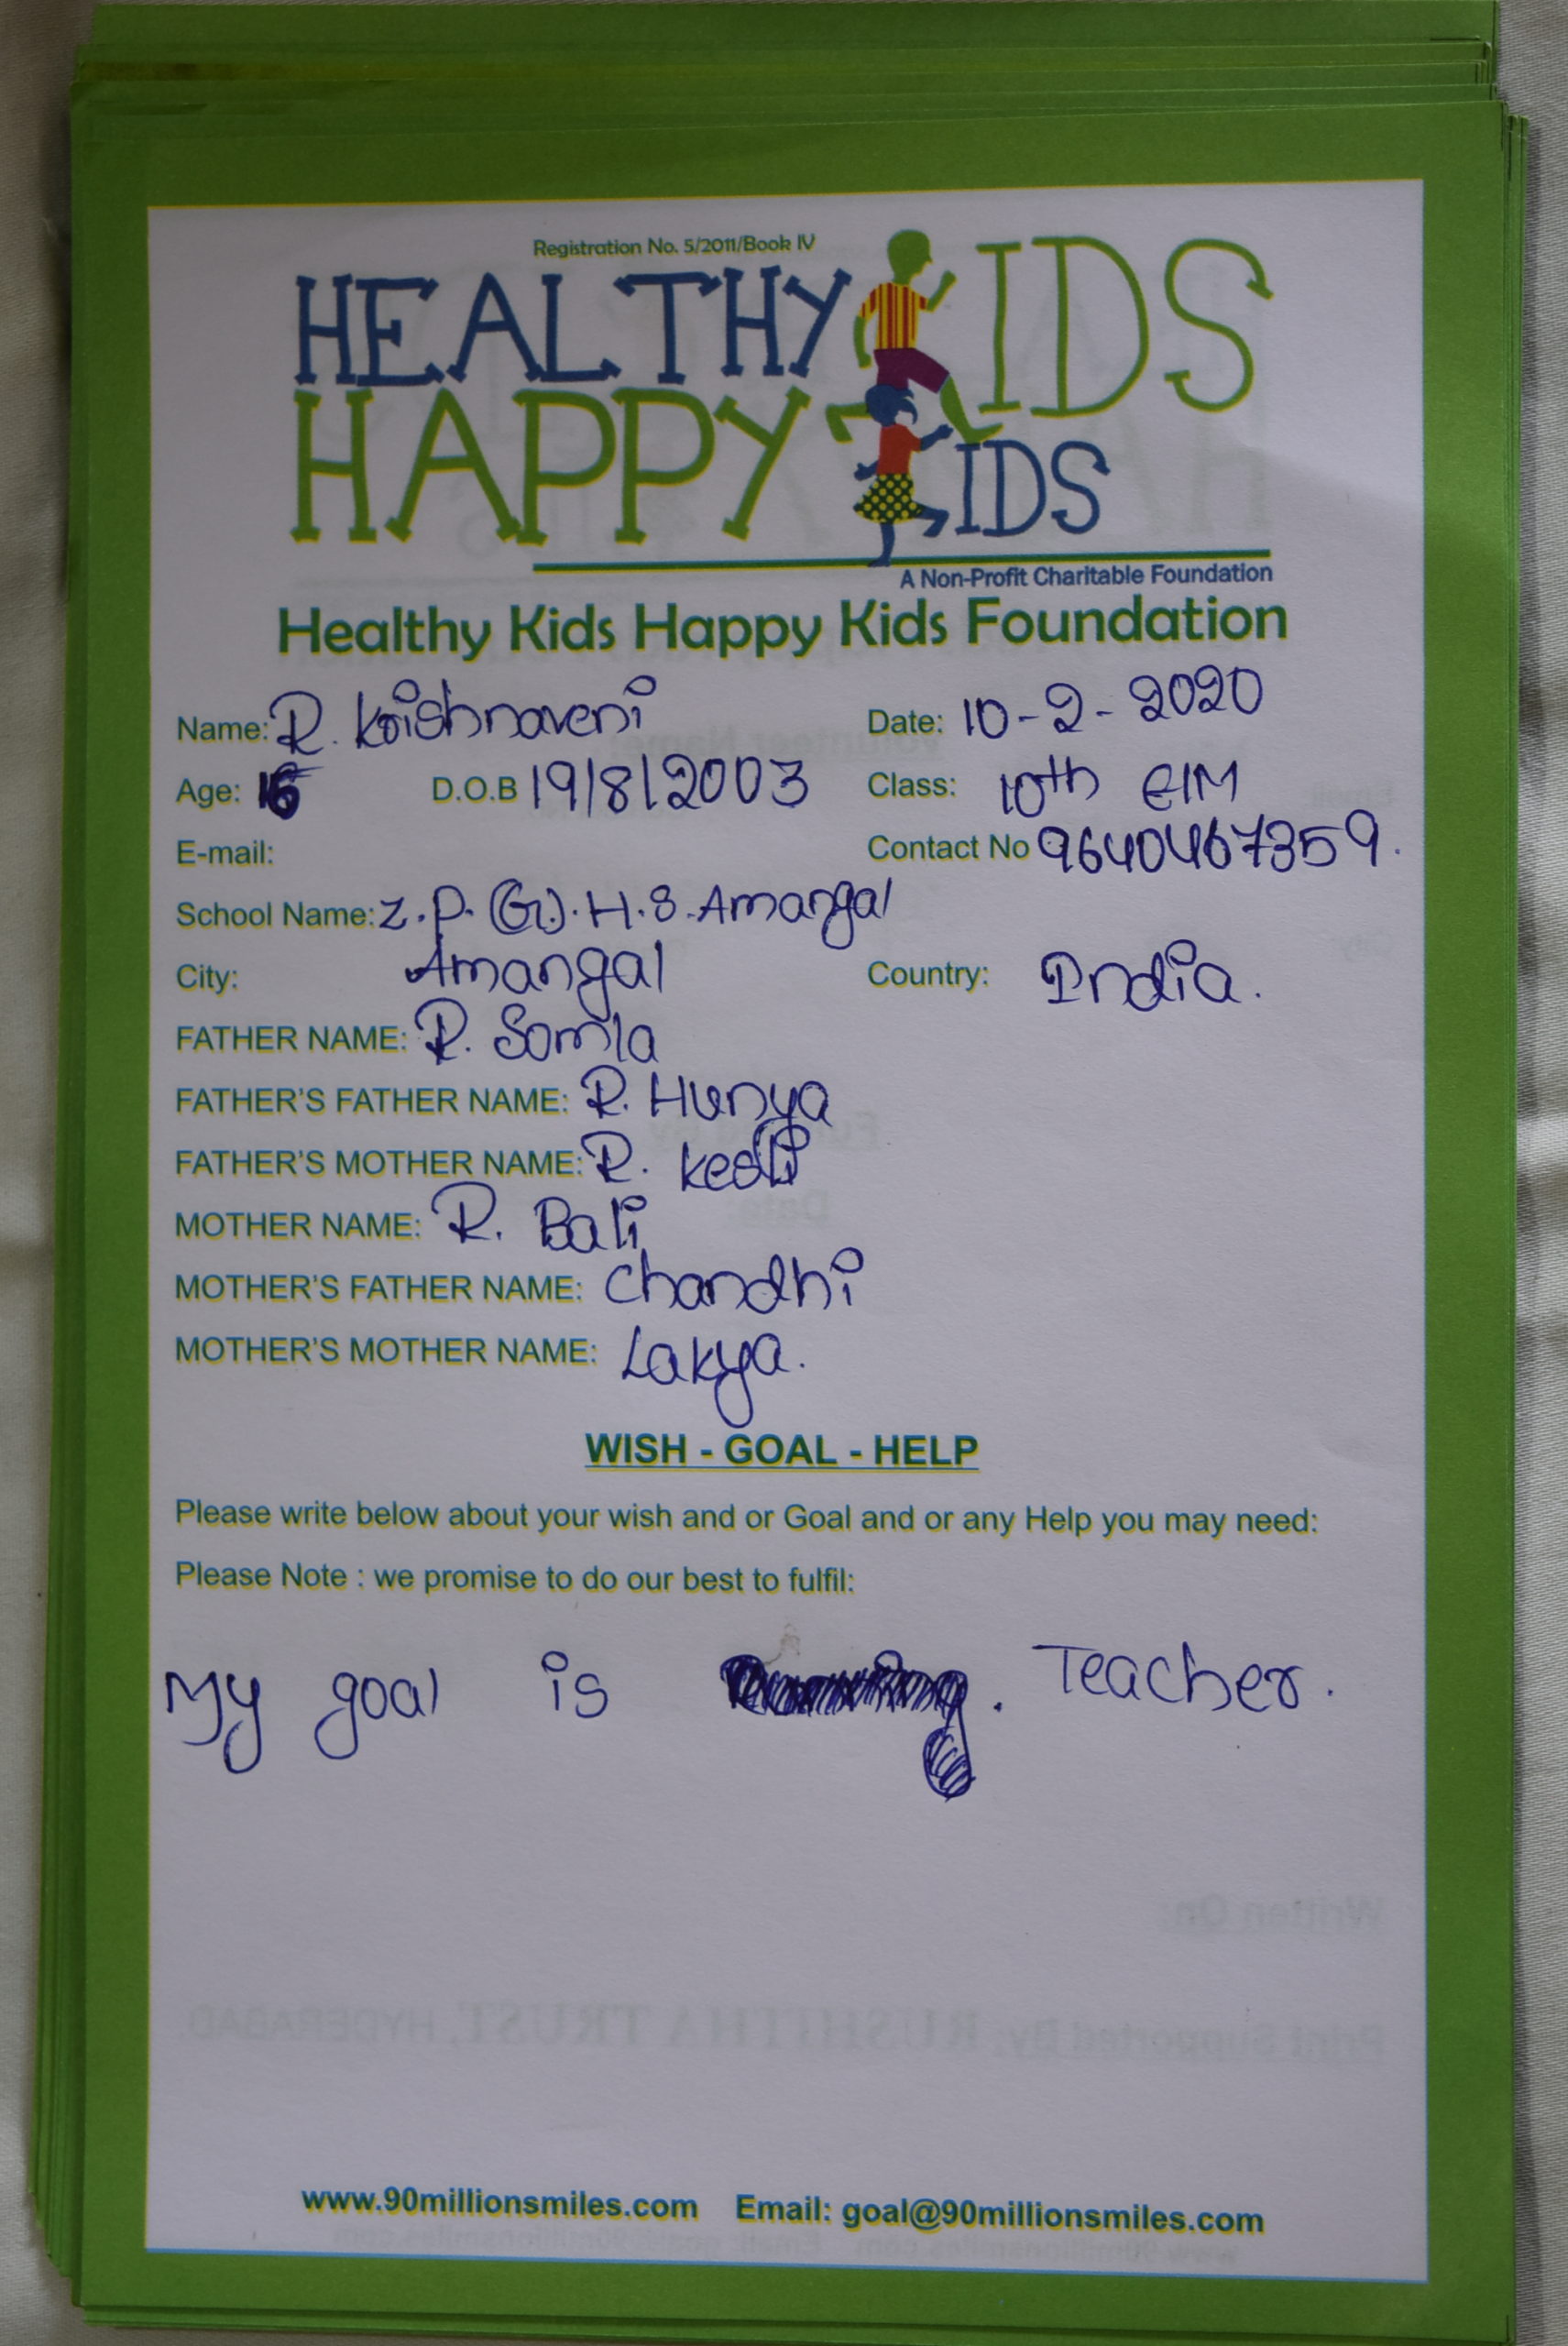 Registration No. 5/2011/Book IV
HEALTHY KIDS
HAPPY KIDS
A Non-Profit Charitable Foundation
Healthy Kids Happy Kids Foundation
Name: R. Krishnaveni Date: 10-2-2020
Age: 16 D.O.B 19/8/2003 Class: 10th E/M
E-mail: Contact No 9640467359.
School Name: Z.P.(G).H.S.Amangal
City: Amangal Country: India.
FATHER NAME: R. Somla
FATHER'S FATHER NAME: R. Hunya
FATHER'S MOTHER NAME: R. Kesli
MOTHER NAME: R. Bali
MOTHER'S FATHER NAME: Chandhi
MOTHER'S MOTHER NAME: Lakya.
WISH - GOAL - HELP
Please write below about your wish and or Goal and or any Help you may need:
Please Note : we promise to do our best to fulfil:
My goal is . Teacher.
www.90millionsmiles.com Email: goal@90millionsmiles.com